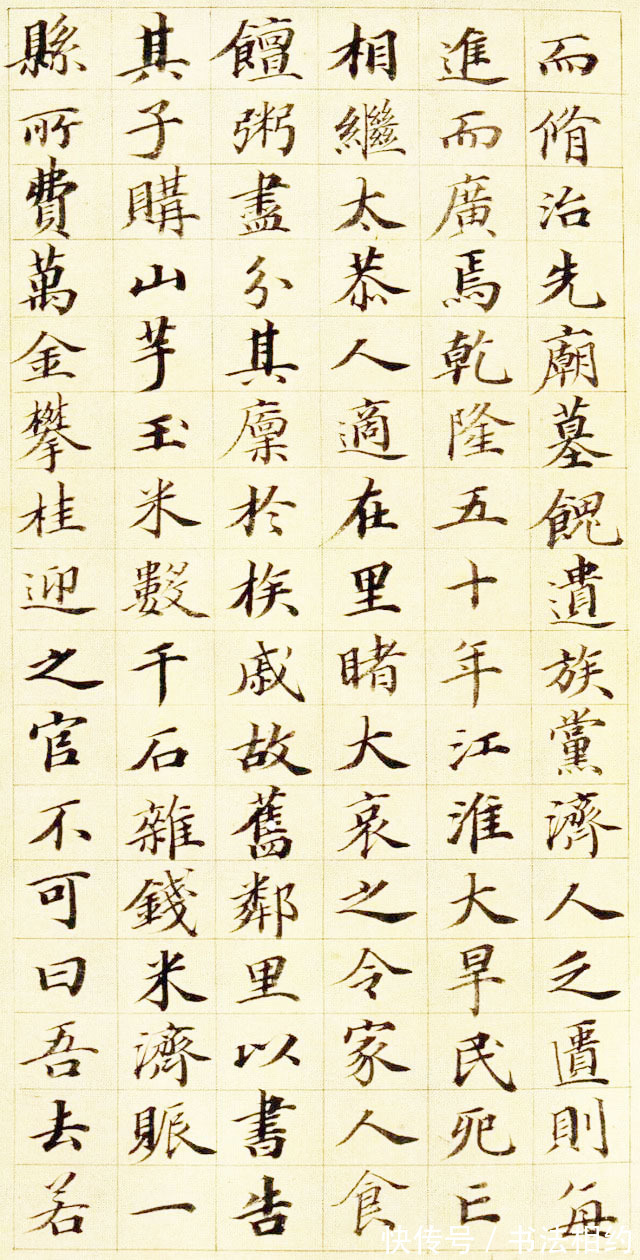 而脩治先廟墓餽遺族黨濟人乏匱則每
進而廣焉乾隆五十年江淮大旱民死亡
相繼太恭人適在里睹大哀之令家人食
饘粥盡分其廩於族戚故舊鄰里以書告
其子購山芋玉米數千石雜錢米濟賑一
縣所費萬金攀桂迎之官不可曰吾去若
快传号 / 书法相约